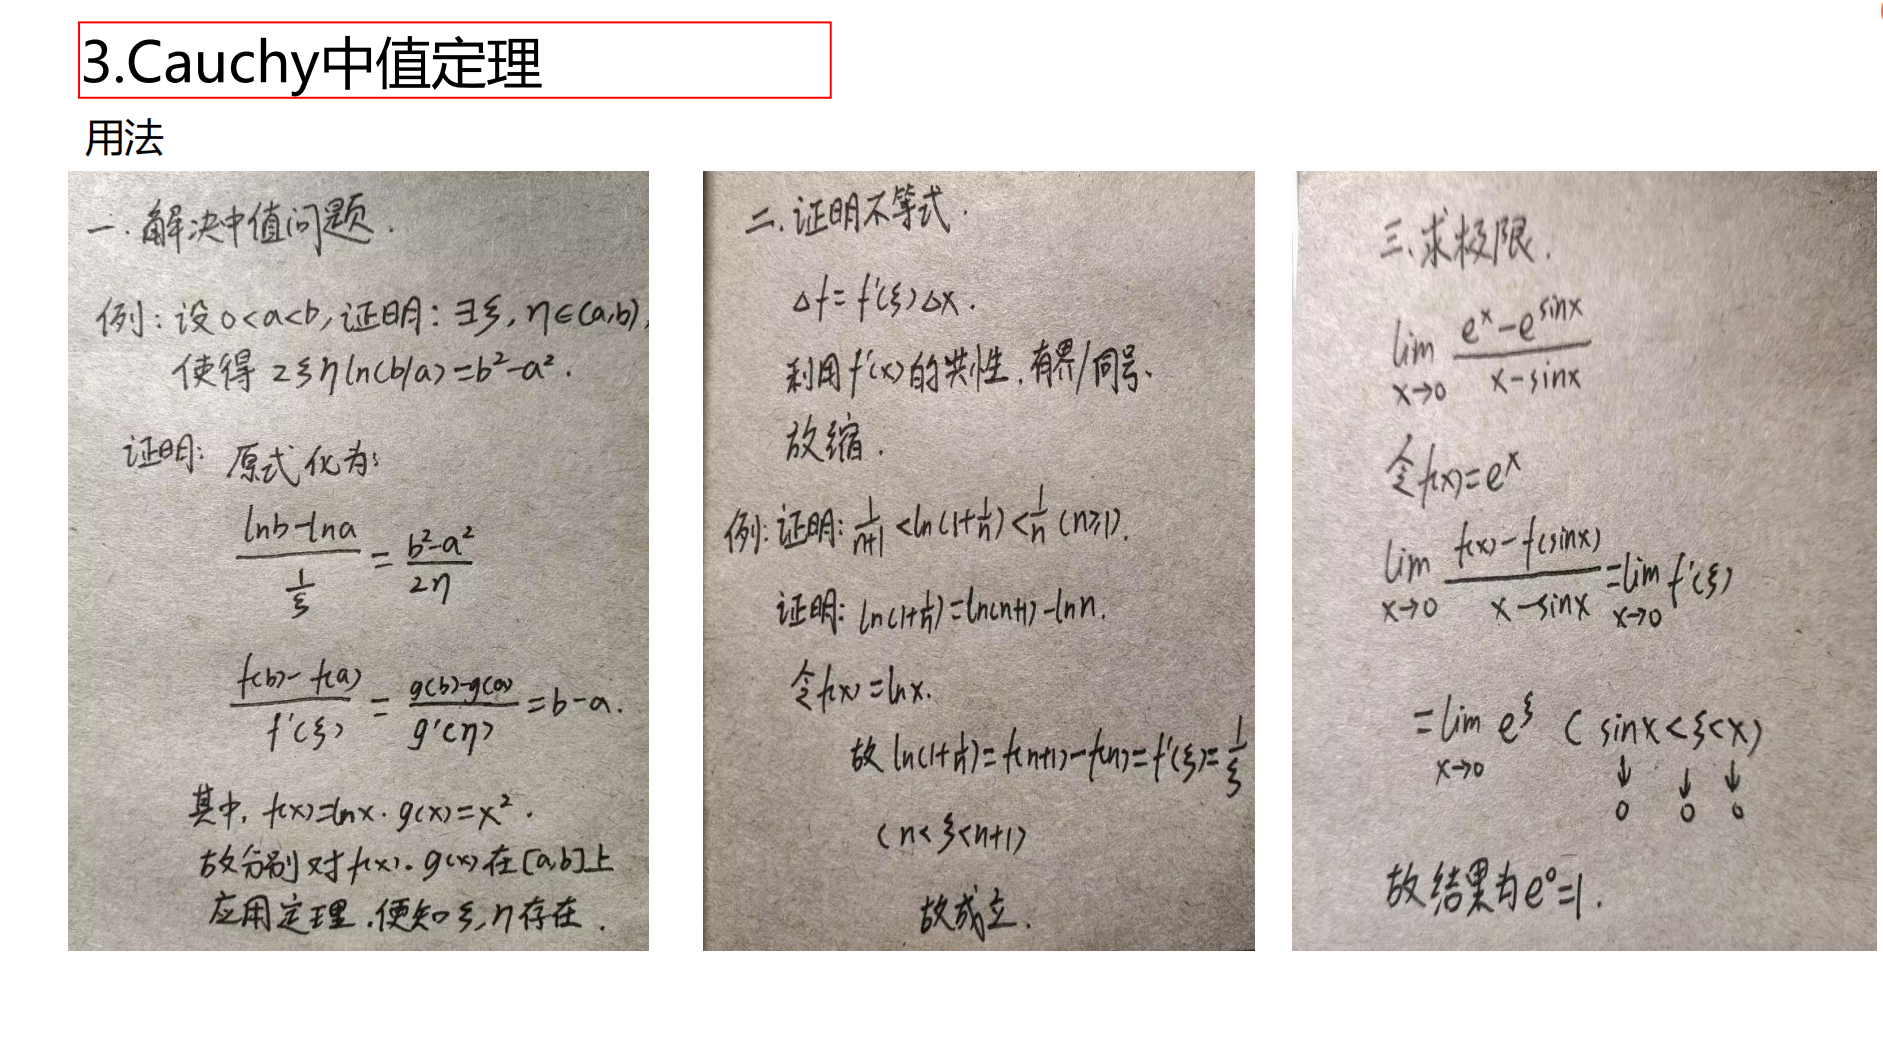 3.Cauchy中值定理
用法
一.解决中值问题.
例:设0<a<b,证明:∃ξ,η∈(a,b),
使得 2ξηln(b/a)=b²-a².
证明: 原式化为:
(lnb-lna)/(1/ξ) = (b²-a²)/(2η)
(f(b)-f(a))/f'(ξ) = (g(b)-g(a))/g'(η) = b-a.
其中, f(x)=lnx. g(x)=x².
故分别对f(x).g(x)在[a,b]上
应用定理.便知ξ,η存在.
二.证明不等式.
△f=f'(ξ)△x.
利用f'(x)的共性.有界/同号、
放缩.
例:证明: 1/(n+1)<ln(1+1/n)<1/n (n≥1).
证明: ln(1+1/n)=ln(n+1)-lnn.
令f(x)=lnx.
故 ln(1+1/n)=f(n+1)-f(n)=f'(ξ)=1/ξ
(n<ξ<n+1)
故成立.
三.求极限.
lim x→0 (eˣ-e^sinx)/(x-sinx)
令f(x)=eˣ
lim x→0 (f(x)-f(sinx))/(x-sinx)=lim x→0 f'(ξ)
=lim x→0 e^ξ (sinx<ξ<x)
↓ ↓ ↓
0 0 0
故结果为e⁰=1.